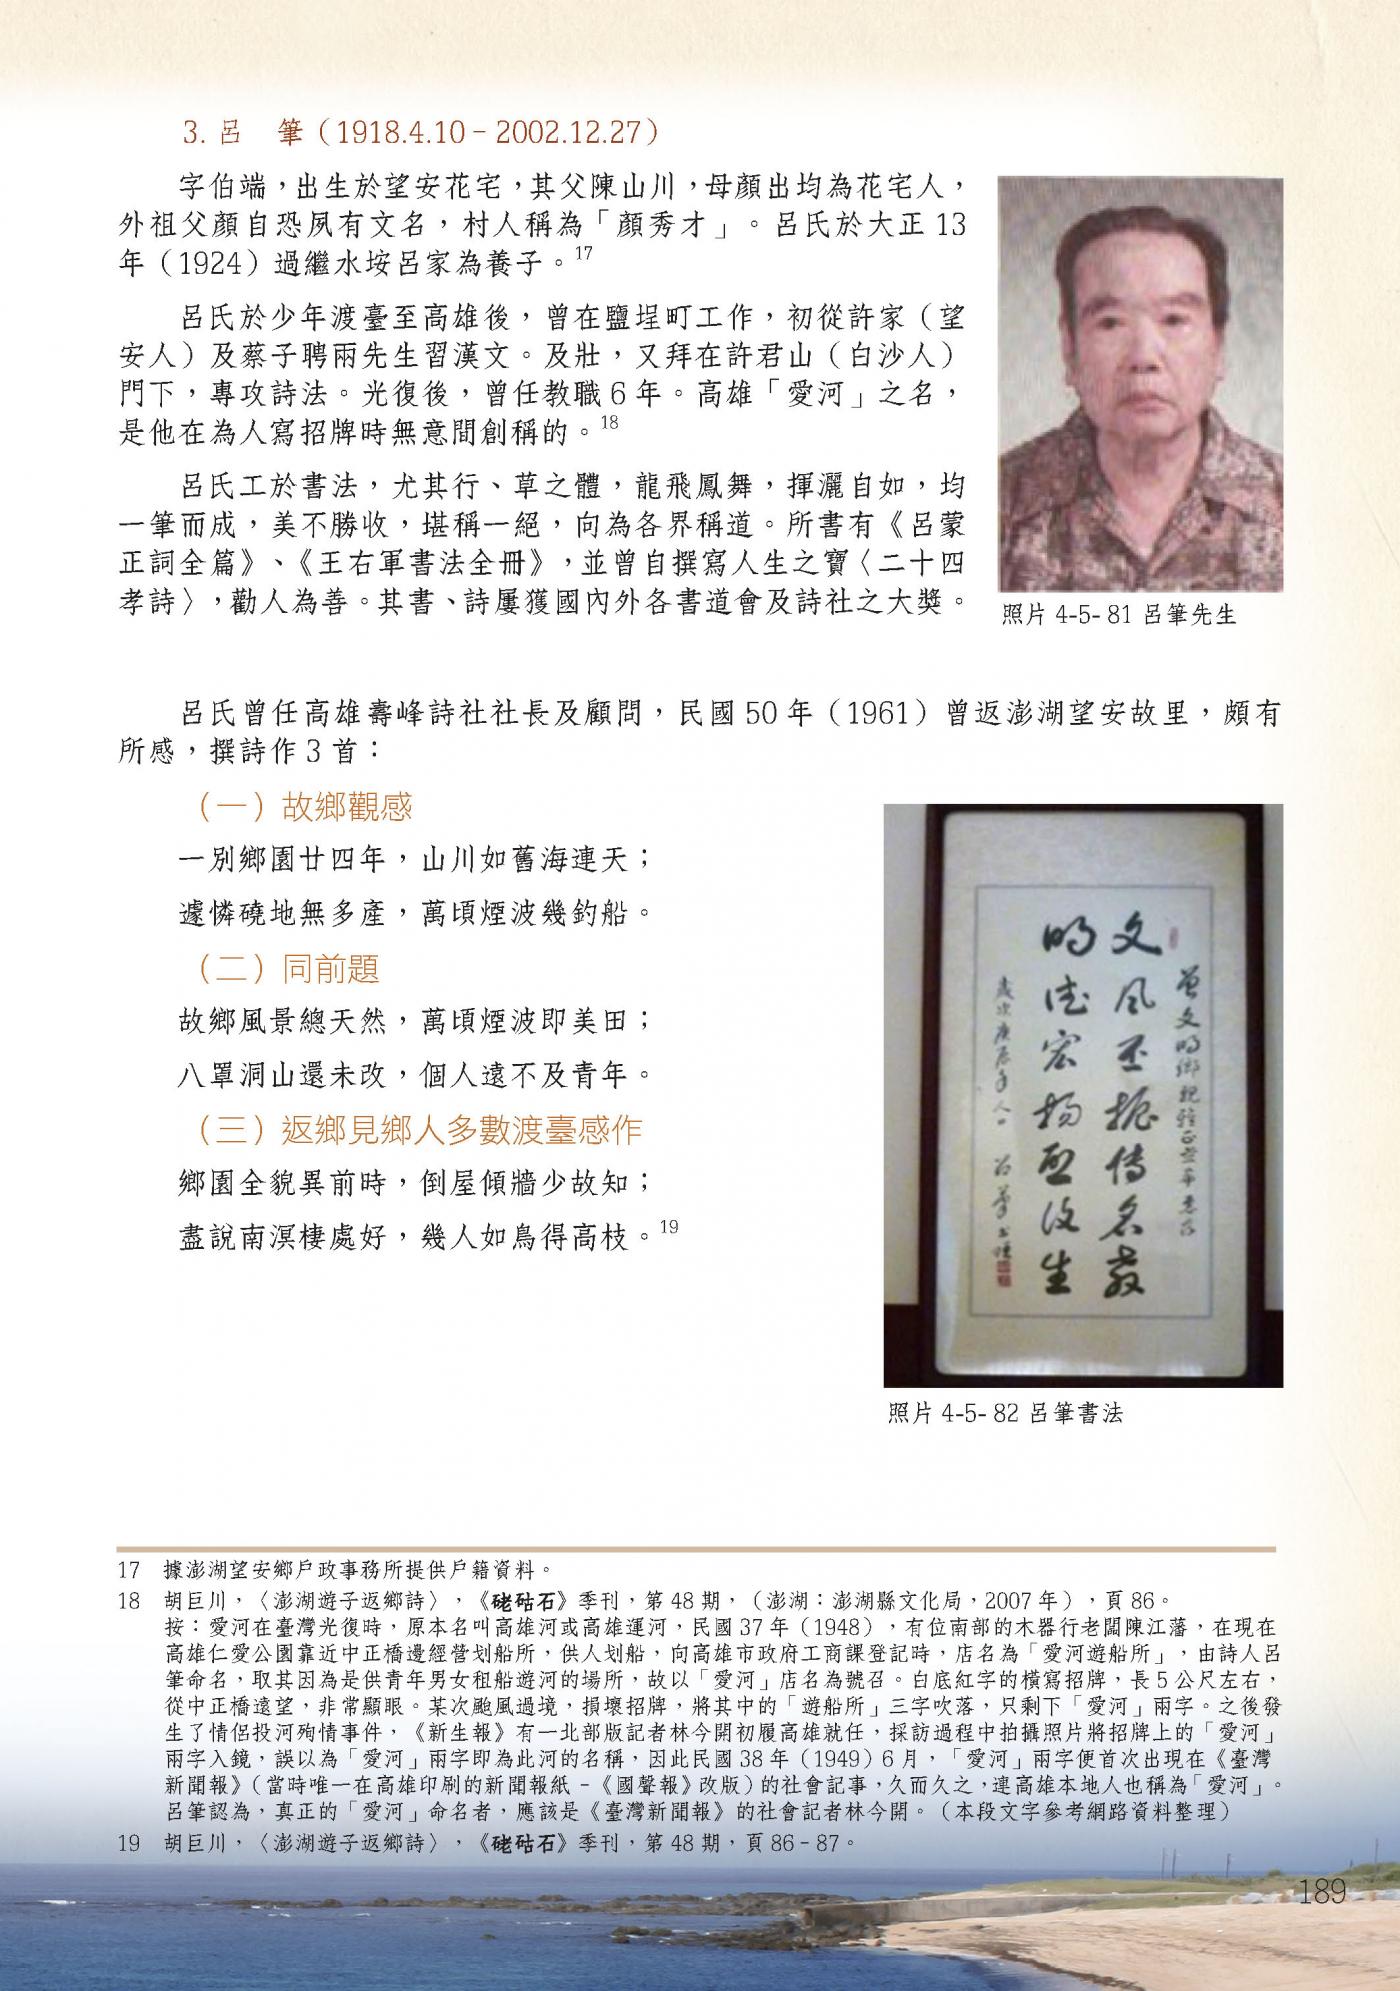 3. 呂　筆（1918.4.10－2002.12.27）
字伯端，出生於望安花宅，其父陳山川，母顏出均為花宅人，
外祖父顏自恐夙有文名，村人稱為「顏秀才」。呂氏於大正 13
年（1924）過繼水垵呂家為養子。17
呂氏於少年渡臺至高雄後，曾在鹽埕町工作，初從許家（望
安人）及蔡子聘兩先生習漢文。及壯，又拜在許君山（白沙人）
門下，專攻詩法。光復後，曾任教職 6 年。高雄「愛河」之名，
是他在為人寫招牌時無意間創稱的。18
呂氏工於書法，尤其行、草之體，龍飛鳳舞，揮灑自如，均
一筆而成，美不勝收，堪稱一絕，向為各界稱道。所書有《呂蒙
正詞全篇》、《王右軍書法全冊》，並曾自撰寫人生之寶〈二十四
孝詩〉，勸人為善。其書、詩屢獲國內外各書道會及詩社之大獎。
照片 4-5- 81 呂筆先生
呂氏曾任高雄壽峰詩社社長及顧問，民國 50 年（1961）曾返澎湖望安故里，頗有
所感，撰詩作 3 首：
（一）故鄉觀感
一別鄉園廿四年，山川如舊海連天；
遽憐磽地無多產，萬頃煙波幾釣船。
（二）同前題
故鄉風景總天然，萬頃煙波即美田；
八罩洞山還未改，個人遠不及青年。
（三）返鄉見鄉人多數渡臺感作
鄉園全貌異前時，倒屋傾牆少故知；
盡說南溟棲處好，幾人如鳥得高枝。19
文風丕振傳名教
明德宏揚啟後生
照片 4-5- 82 呂筆書法
17　據澎湖望安鄉戶政事務所提供戶籍資料。
18　胡巨川，〈澎湖遊子返鄉詩〉，《硓𥑮石》季刊，第 48 期，（澎湖：澎湖縣文化局，2007 年），頁 86。
按：愛河在臺灣光復時，原本名叫高雄河或高雄運河，民國 37 年（1948），有位南部的木器行老闆陳江藩，在現在
高雄仁愛公園靠近中正橋邊經營划船所，供人划船，向高雄市政府工商課登記時，店名為「愛河遊船所」，由詩人呂
筆命名，取其因為是供青年男女租船遊河的場所，故以「愛河」店名為號召。白底紅字的橫寫招牌，長 5 公尺左右，
從中正橋遠望，非常顯眼。某次颱風過境，損壞招牌，將其中的「遊船所」三字吹落，只剩下「愛河」兩字。之後發
生了情侶投河殉情事件，《新生報》有一北部版記者林今開初履高雄就任，採訪過程中拍攝照片將招牌上的「愛河」
兩字入鏡，誤以為「愛河」兩字即為此河的名稱，因此民國 38 年（1949）6 月，「愛河」兩字便首次出現在《臺灣
新聞報》（當時唯一在高雄印刷的新聞報紙－《國聲報》改版）的社會記事，久而久之，連高雄本地人也稱為「愛河」。
呂筆認為，真正的「愛河」命名者，應該是《臺灣新聞報》的社會記者林今開。（本段文字參考網路資料整理）
19　胡巨川，〈澎湖遊子返鄉詩〉，《硓𥑮石》季刊，第 48 期，頁 86－87。
189